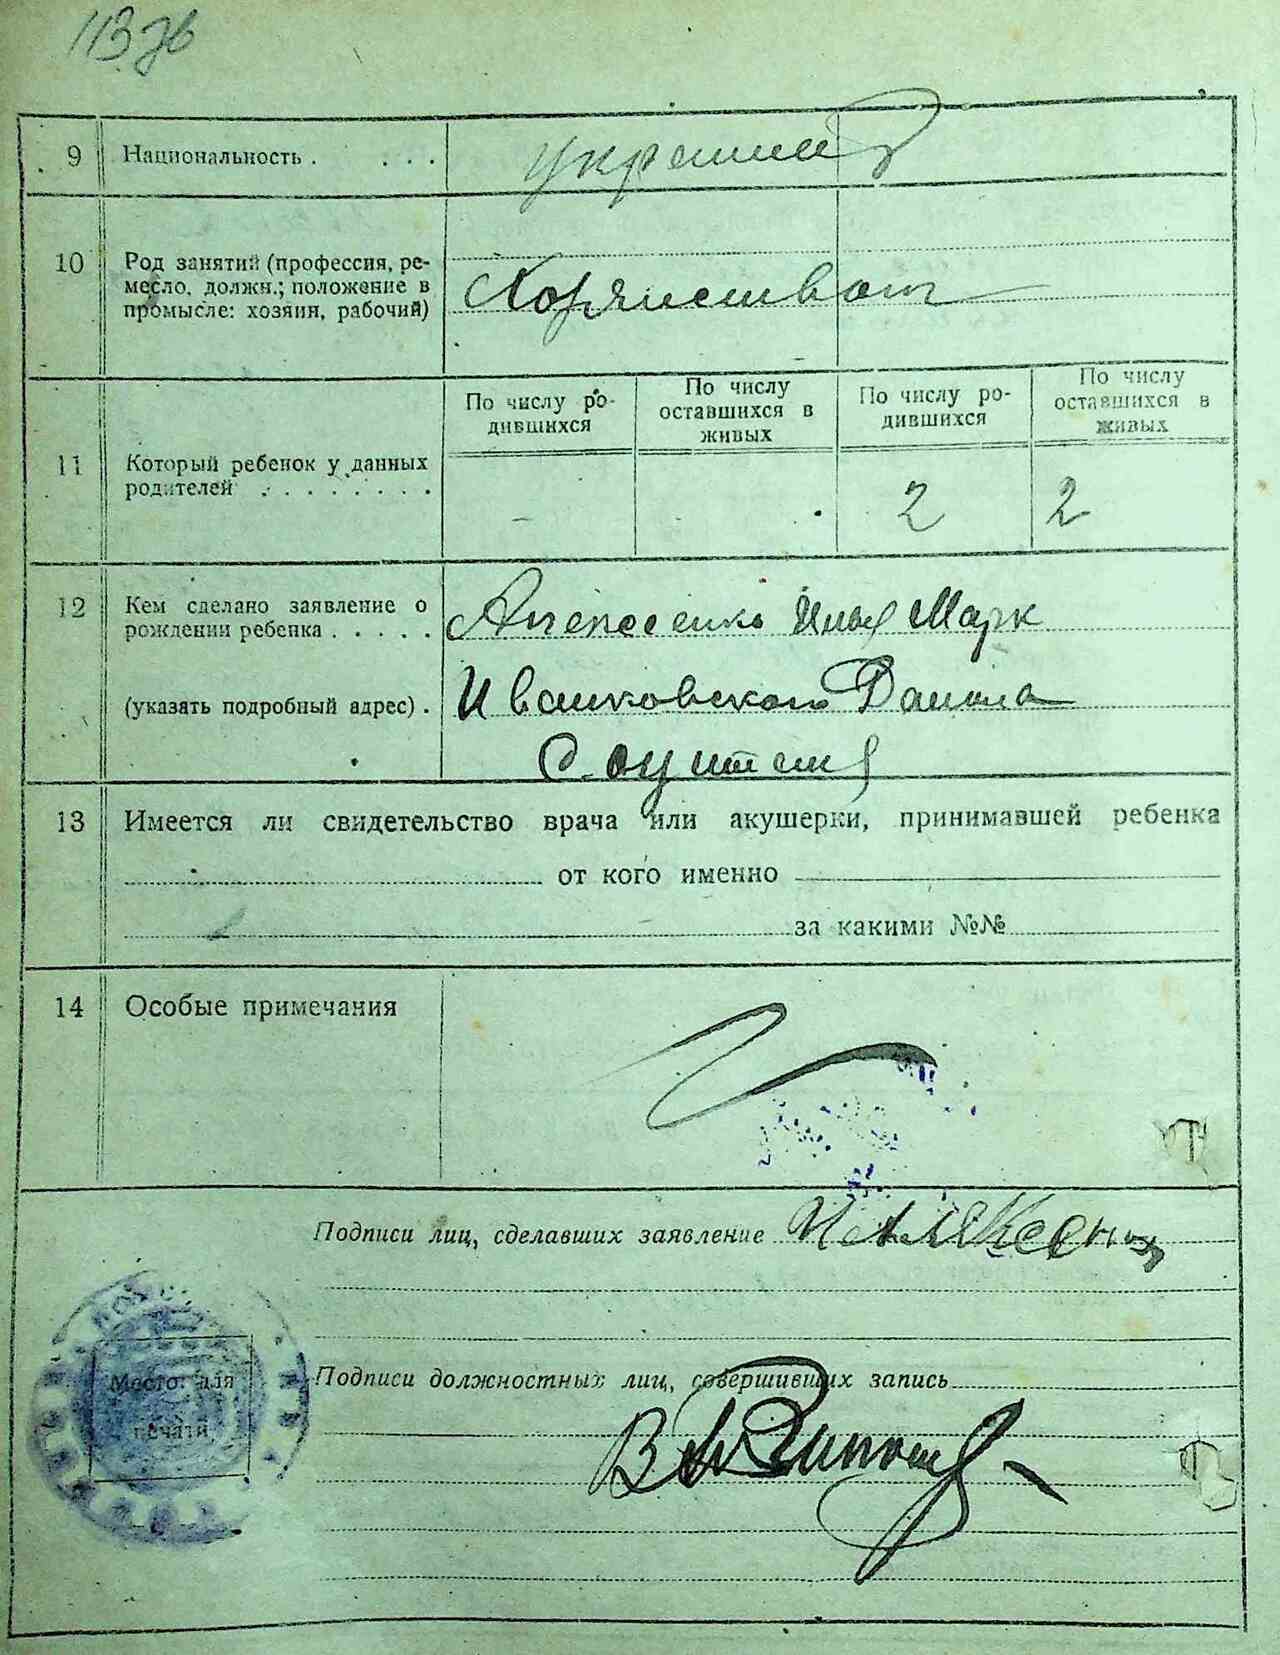 113 зв
9 Национальность . . . .
10 Род занятий (профессия, ре-
месло, должн.; положение в
промысле: хозяин, рабочий)
11 Который ребенок у данных
родителей . . . . . . . .
По числу ро-
дившихся
По числу
оставшихся в
живых
По числу ро-
дившихся
По числу
оставшихся в
живых
2 2
12 Кем сделано заявление о
рождении ребенка . . . . .
(указать подробный адрес) .
Алексеенко Илья Марк
Ивашковского Района
13 Имеется ли свидетельство врача или акушерки, принимавшей ребенка
от кого именно
за какими №№
14 Особые примечания
Подписи лиц, сделавших заявление
Место для
печати
Подписи должностных лиц, совершивших запись